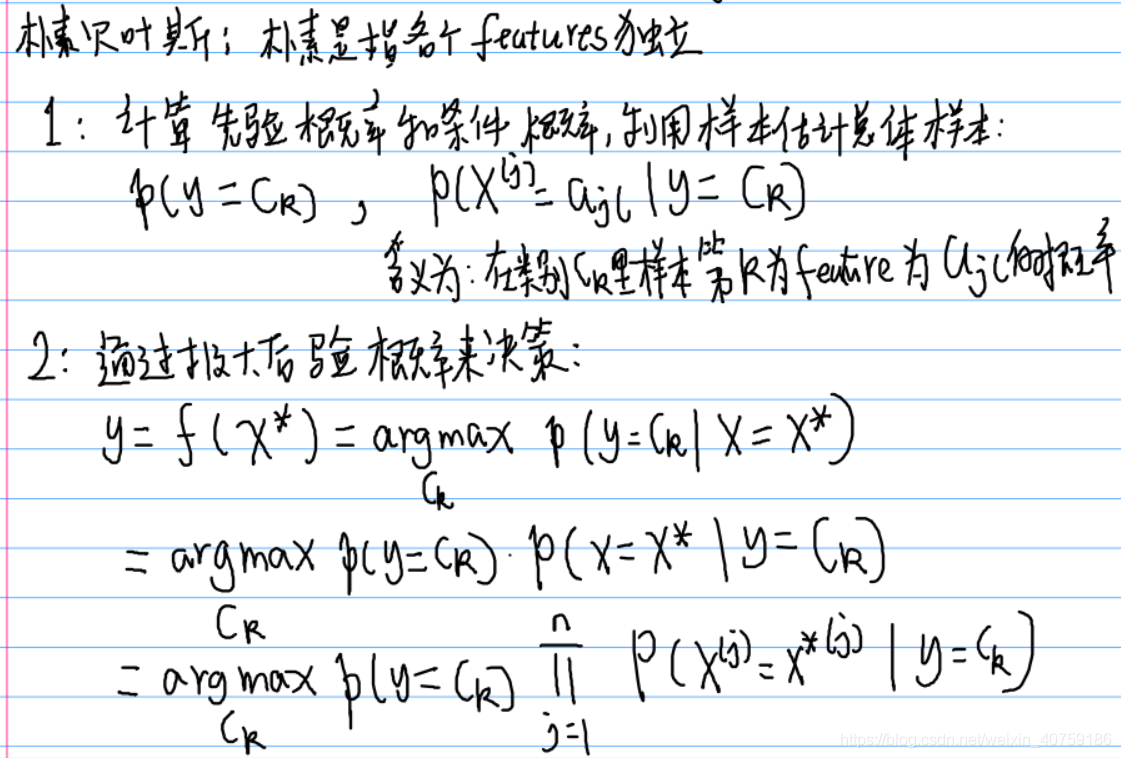 朴素贝叶斯: 朴素是指各个features为独立
1: 计算先验概率和条件概率,利用样本估计总体样本:
p(y=C_k), p(X^{(j)}=a_{jl}|y=C_k)
含义为:在类别C_k里样本第k为feature为a_{jl}的概率
2: 通过极大后验概率来决策:
y=f(x*)=argmax p(y=C_k|X=X*)
C_k
=argmax p(y=C_k)·p(X=X*|y=C_k)
C_k
=argmax p(y=C_k) ∏_{j=1}^{n} P(X^{(j)}=x*^{(j)}|y=C_k)
C_k
https://blog.csdn.net/weixin_40759186